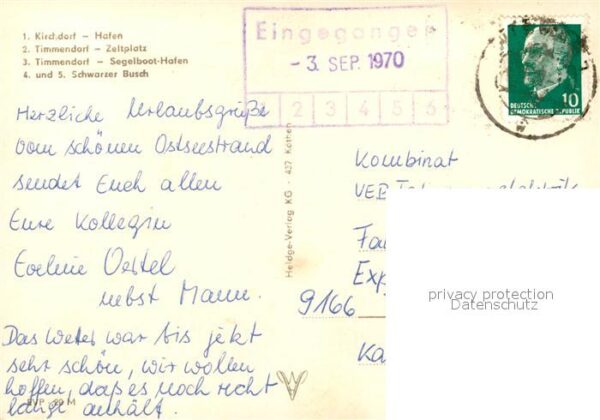 1. Kirchdorf – Hafen
2. Timmendorf – Zeltplatz
3. Timmendorf – Segelboot-Hafen
4. und 5. Schwarzer Busch
Eingegangen
- 3. SEP. 1970
2 3 4 5 6
DEUTSCHE
DEMOKRATISCHE REPUBLIK
10
Herzliche Urlaubsgrüße
vom schönen Ostseestrand
sendet Euch allen
Eure Kollegin
Eveline Oertel
nebst Mann.
Das Wetter war bis jetzt
sehr schön, wir wollen
hoffen, daß es noch recht
lange anhält.
Heldge-Verlag KG · 437 Köthen
Kombinat
VEB
Fa
Exp
9166
Ka
privacy protection
Datenschutz